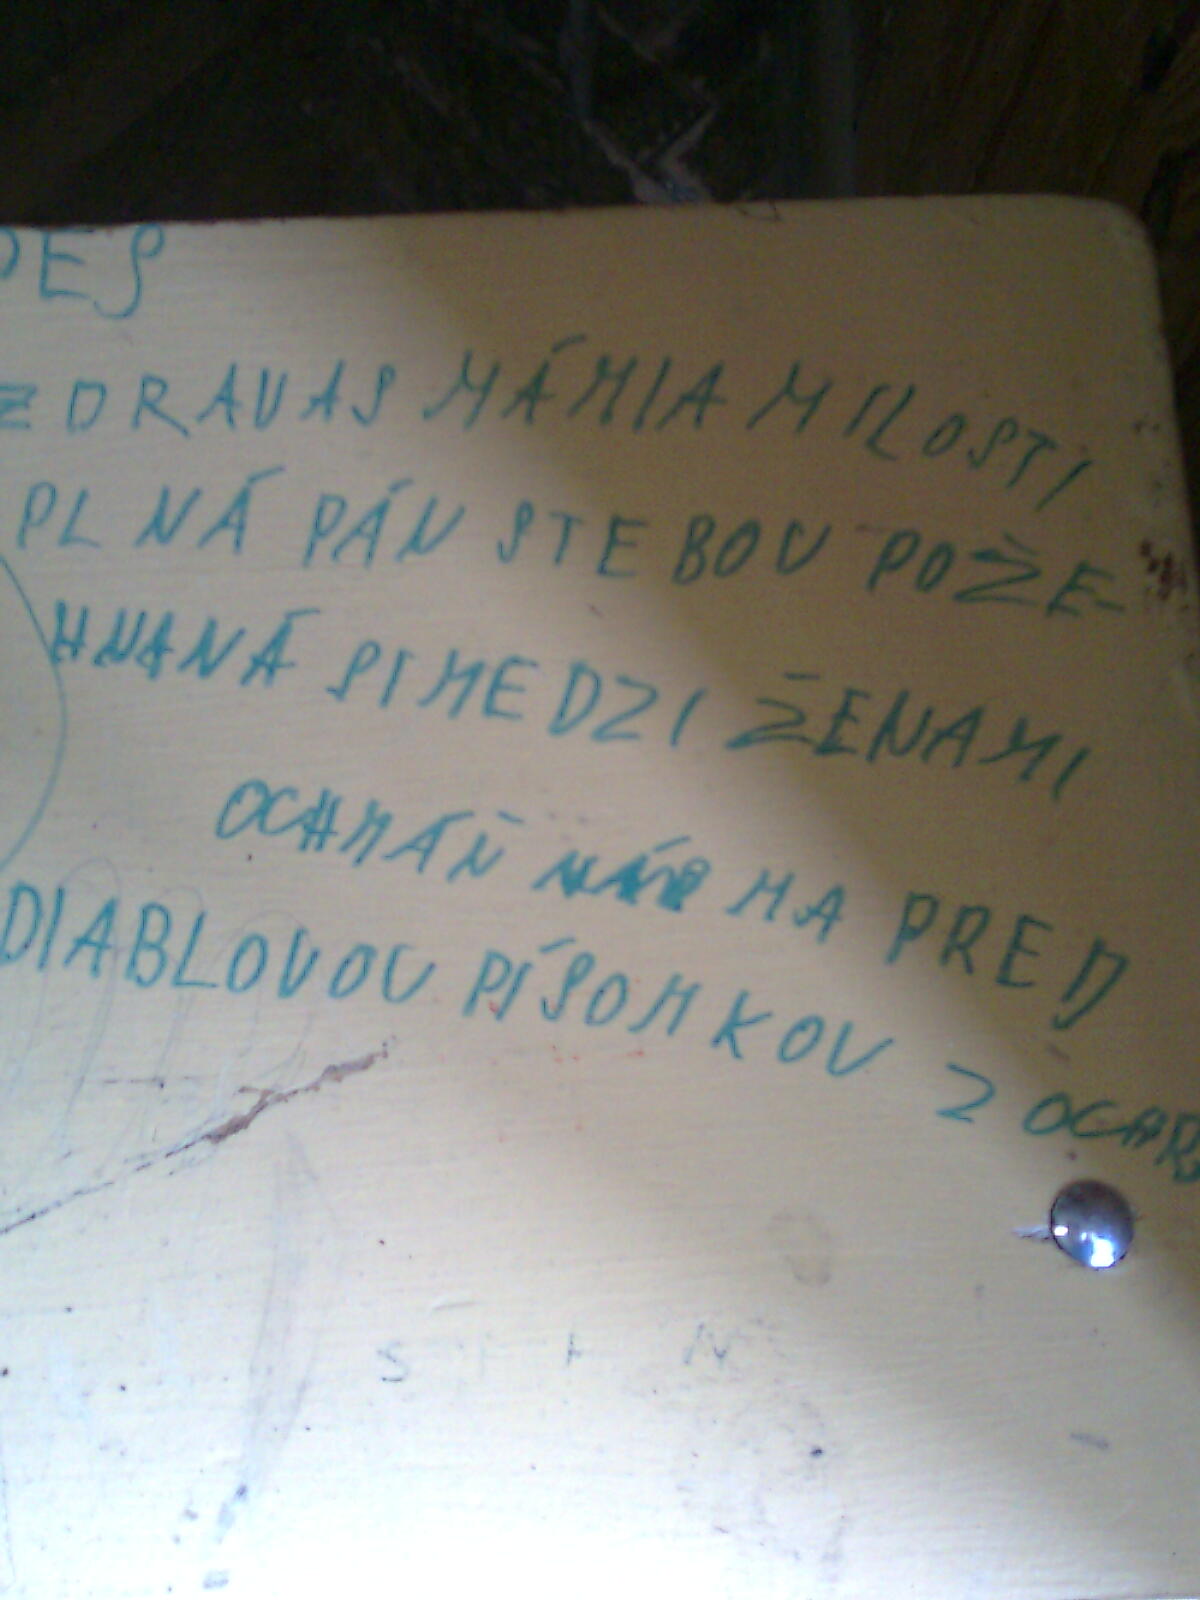 DES
ZDRAVAS MÁMIA MILOSTI
PLNÁ PÁN STEBOU POŽE-
HNANÁ SI MEDZI ŽENAMI
OCHMÁŇ MA PRED
DIABLOVOU PÍSOMKOV Z OCAR